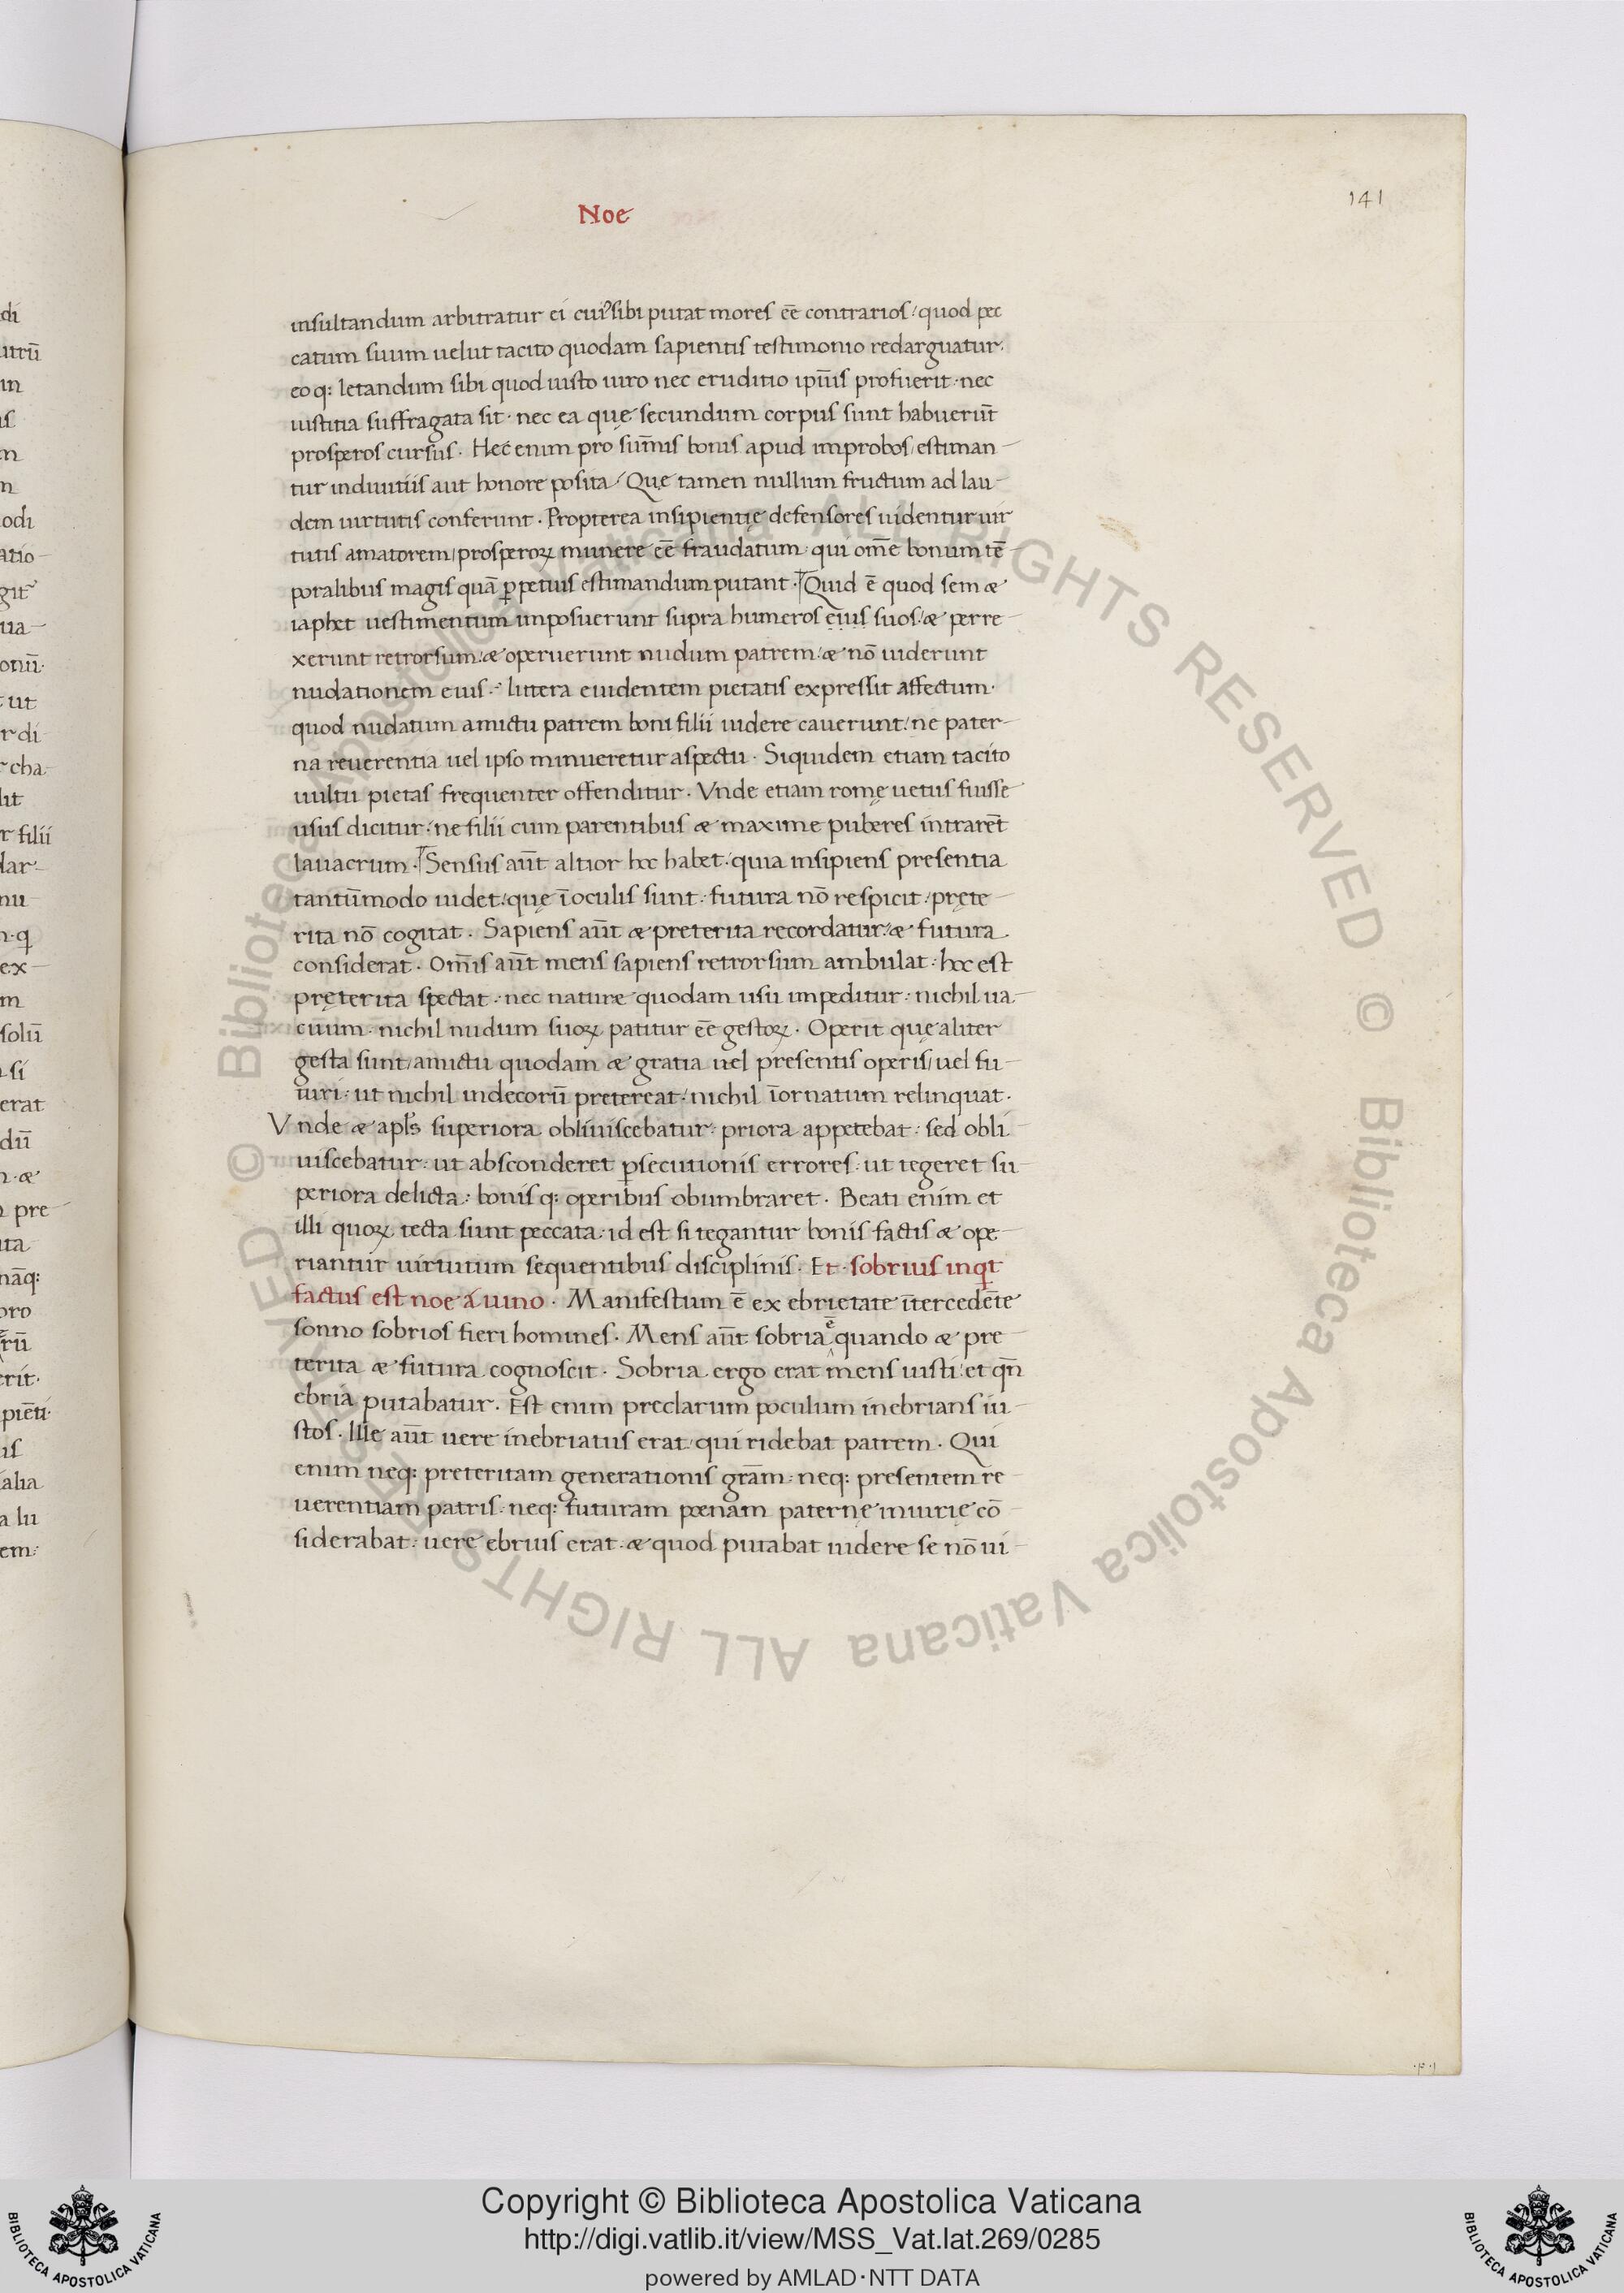 Noe
141
insultandum arbitratur ei cui⁹ sibi putat mores eē contrarios: quod pec
catum suum uelut tacito quodam sapientis testimonio redarguatur.
eoq: letandum sibi quod iusto uiro nec eruditio ipīus profuerit. nec
iustitia suffragata sit. nec ea quę secundum corpus sunt habuerūt
prosperos cursus. Hec enim pro sum̄is bonis apud improbos/estiman-
tur in diuitiis aut honore posita/ Quę tamen nullum fructum ad lau-
dem uirtutis conferunt. Propterea insipientię defensores uidentur uir
tutis amatorem/prosperoꝝ munere eē fraudatum. qui om̄e bonum tē-
poralibus magis quā ꝑpetuis estimandum putant. Quid ē quod sem &
iaphet uestimentum imposuerunt supra humeros eius suos: & perre-
xerunt retrorsum: & operuerunt nudum patrem: & nō uiderunt
nudationem eius. littera euidentem pietatis expressit affectum.
quod nudatum amictu patrem boni filii uidere cauerunt: ne pater-
na reuerentia uel ipso minueretur aspectu. Siquidem etiam tacito
uultu pietas frequenter offenditur. Vnde etiam romę uetus fuisse
usus dicitur: ne filii cum parentibus & maxime puberes intrarēt
lauacrum. Sensus aūt altior hoc habet: quia insipiens presentia
tantūmodo uidet: quę ī oculis sunt. futura nō respicit: pręte-
rita nō cogitat. Sapiens aūt & preterita recordatur: & futura
considerat. Om̄is aūt mens sapiens retrorsum ambulat: hoc est
pręterita spectat: nec nature quodam usu impeditur: nichil ua-
cuum. nichil nudum suoꝝ patitur eē gestoꝝ. Operit quę aliter
gesta sunt/amictu quodam & gratia uel presentis operis/uel fu-
turi: ut nichil indecorū pretereat: nichil īornatum relinquat.
Vnde & apl̄s superiora obliuiscebatur: priora appetebat: sed obli
uiscebatur: ut absconderet ꝑsecutionis errores: ut tegeret su-
periora delicta: bonisq: operibus obumbraret. Beati enim et
illi quoꝝ tecta sunt peccata: id est si tegantur bonis factis & ope-
riantur uirtutum sequentibus disciplinis. Et sobrius inqͥt
factus est noe á uino. Manifestum ē ex ebrietate ītercedēte
sonno sobrios fieri homines. Mens aūt sobria ē quando & pre-
terita & futura cognoscit. Sobria ergo erat mens iusti: et qn̄
ebria putabatur. Est enim preclarum poculum inebrians iu-
stos. Ille aūt uere inebriatus erat/qui ridebat patrem. Qui
enim neq: preteritam generationis grām: neq: presentem re
uerentiam patris: neq: futuram pœnam paternę iniurię cō-
siderabat: uere ebrius erat. & quod putabat uidere se nō ui-
Copyright © Biblioteca Apostolica Vaticana
http://digi.vatlib.it/view/MSS_Vat.lat.269/0285
powered by AMLAD·NTT DATA